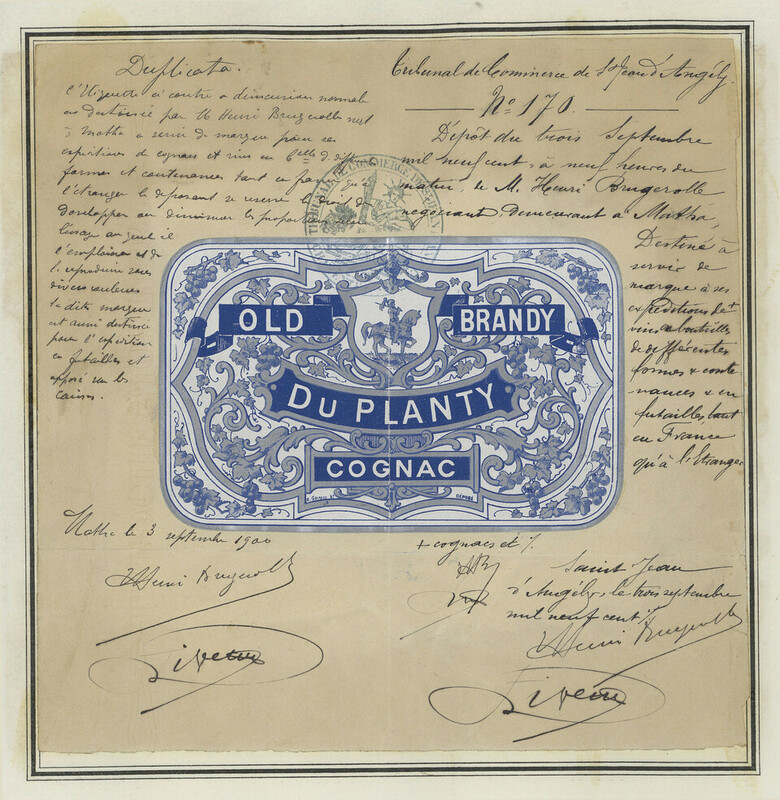 Duplicata.
l'Etiquette ci contre a dimension normale
est destinée par M Henri Brugerolle négt
à Matha a servir de marque pour ses
expéditions de cognac et vins en Blles de difftes
formes et contenances tant en France qu'à
l'étranger le déposant se réserve le droit de
développer ou diminuer les proportions
l'emploiera et de
diverses couleurs
la dite marque
est aussi destinée
pour l'expédition
en futailles et
apposé sur les
caisses.
Tribunal de Commerce de St Jean d'Angély.
No 170.
Dépôt du trois Septembre
mil neuf cent, à neuf heures du
matin, de M. Henri Brugerolle
négociant, demeurant à Matha,
Destiné à
servir de
marque à ses
expéditions de +
vins en bouteilles
de différentes
formes & conte
nances & en
futailles tant
en France
qu'à l'Etranger
OLD BRANDY
DU PLANTY
COGNAC
DÉPOSÉ
Matha le 3 septembre 1900
Henri Brugerolle
+ cognacs et /.
HB
Saint Jean
d'Angély, le trois septembre
mil neuf cent /.
Henri Brugerolle